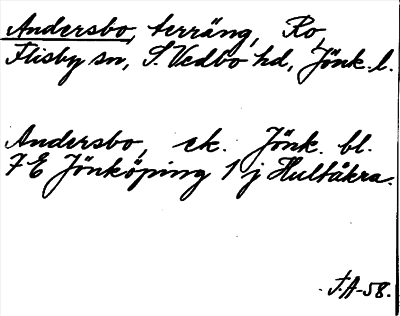 Andersbo, terräng, Ro,
Flisby sn, S. Vedbo hd, Jönk. l.
Andersbo, ek. Jönk. bl.
7 E Jönköping 1 j Hultåkra.
J.A-58.